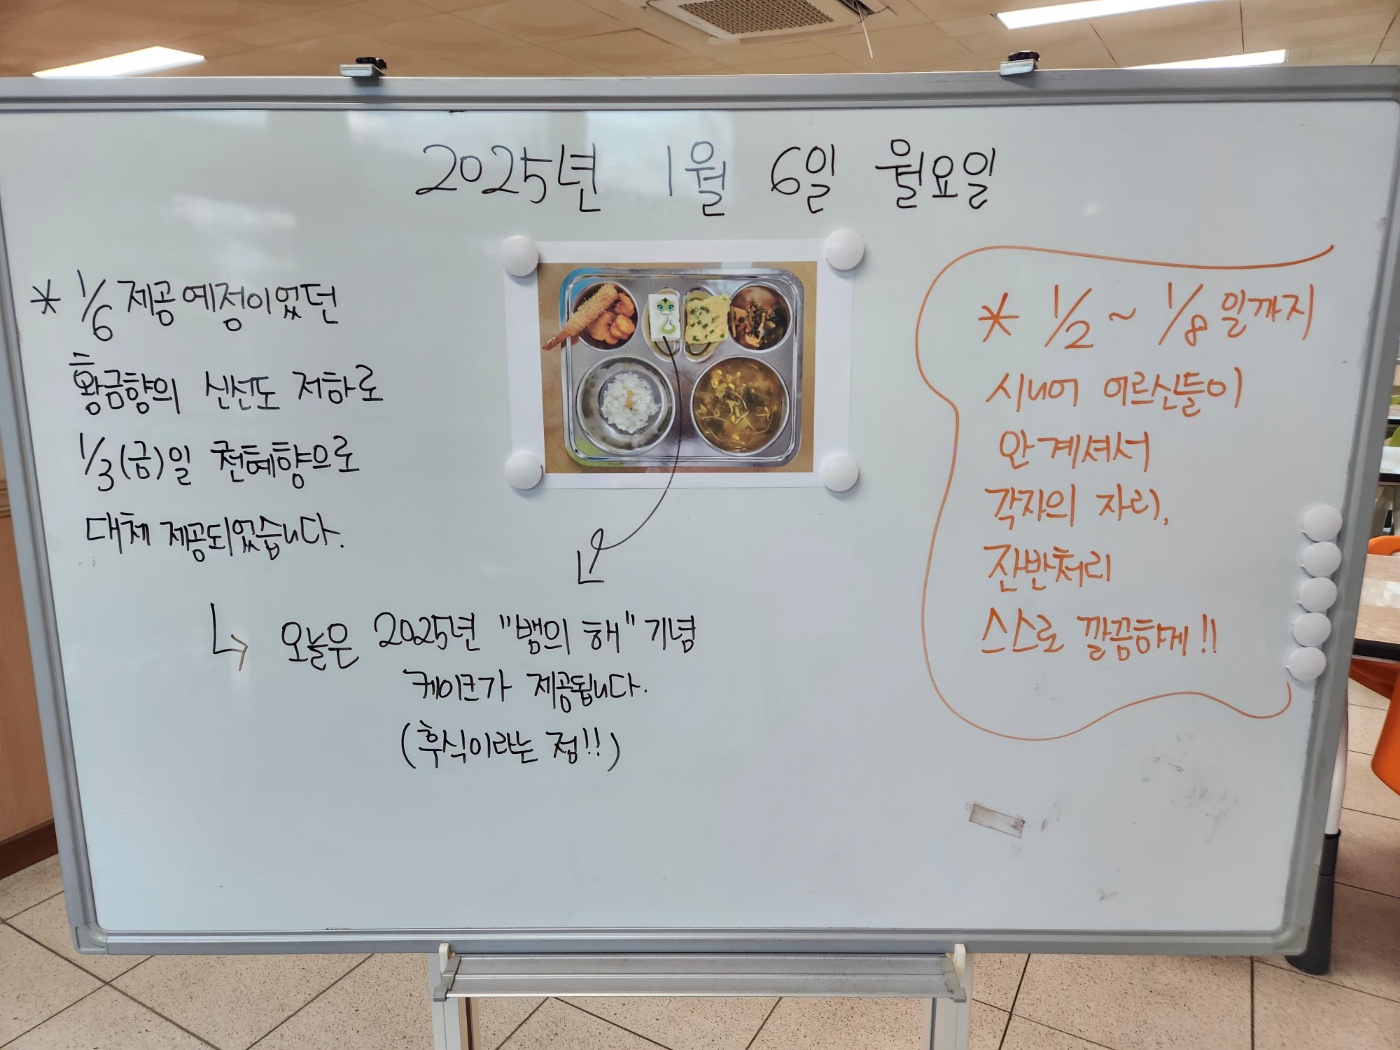 2025년 1월 6일 월요일
* 1/6 제공예정이었던
황금향의 신선도 저하로
1/3(금)일 천혜향으로
대체 제공되었습니다.
오늘은 2025년 "뱀의 해" 기념
케이크가 제공됩니다.
(후식이라는 점!!)
* 1/2 ~ 1/8일까지
시니어 어르신들이
안계셔서
각자의 자리,
잔반처리
스스로 깔끔하게!!